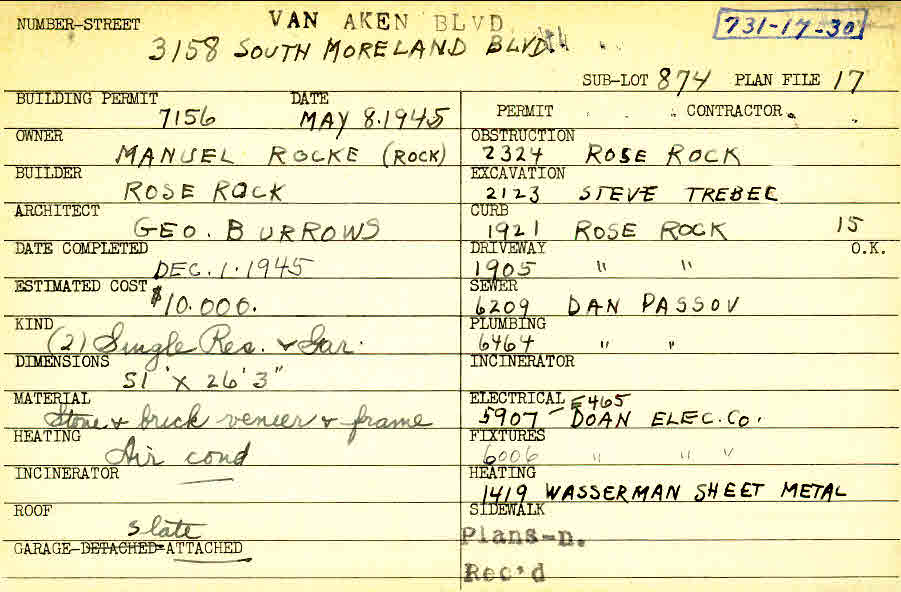 NUMBER-STREET VAN AKEN BLVD 731-17-30
3158 SOUTH MORELAND BLVD.
SUB-LOT 874 PLAN FILE 17
BUILDING PERMIT 7156 DATE MAY 8.1945
OWNER MANUEL ROCKE (ROCK)
BUILDER ROSE ROCK
ARCHITECT GEO. BURROWS
DATE COMPLETED DEC. 1. 1945
ESTIMATED COST $10.000.
KIND (2) Single Res. & Gar.
DIMENSIONS 51' X 26'3"
MATERIAL Stone & brick veneer & frame
HEATING Air cond
INCINERATOR
ROOF slate
GARAGE-DETACHED-ATTACHED
PERMIT " " CONTRACTOR
OBSTRUCTION
2324 ROSE ROCK
EXCAVATION
2123 STEVE TREBEC
CURB
1921 ROSE ROCK 15
DRIVEWAY O.K.
1905 " "
SEWER
6209 DAN PASSOV
PLUMBING
6464 " "
INCINERATOR
ELECTRICAL E465
5907 - DOAN ELEC. Co.
FIXTURES
6006 " " "
HEATING
1419 WASSERMAN SHEET METAL
SIDEWALK
Plans-n.
Rec'd